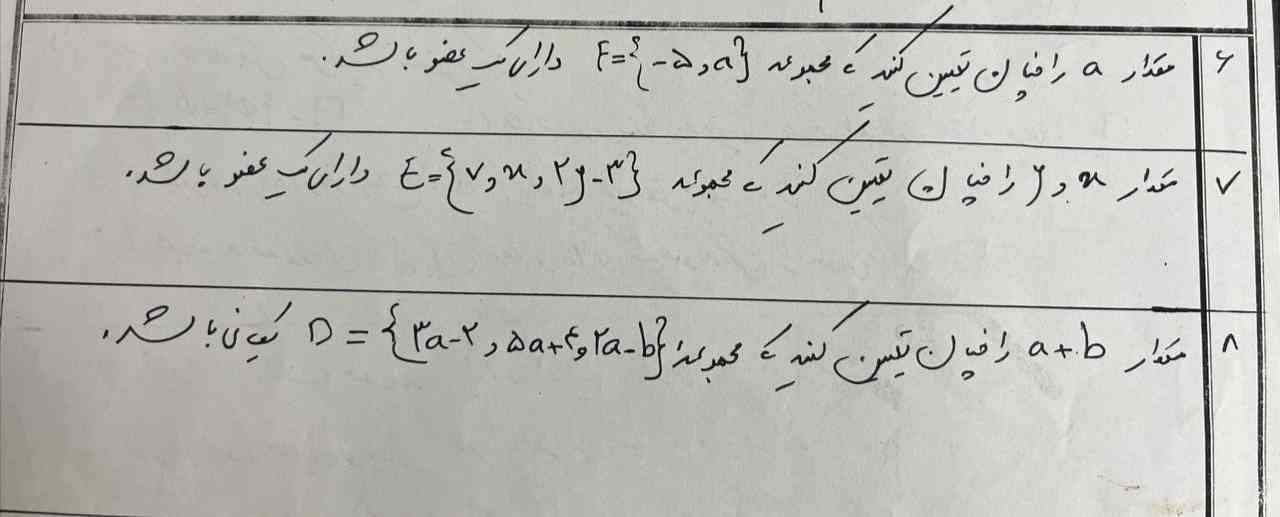 ۶ مقدار a را چنان تعیین کنید که مجموعه F={-۵, a} دارای یک عضو باشد.
۷ مقدار x و y را چنان تعیین کنید که مجموعه E={۷, x, ۲y-۳} دارای یک عضو باشد.
۸ مقدار a+b را چنان تعیین کنید که مجموعه D = {۳a-۲, ۵a+۴, ۲a-b} یکانی باشد.